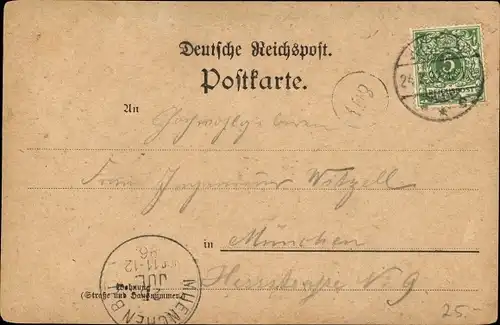 Deutsche Reichspost.
Postkarte.
5
An
Hochwohlgeboren
Frau Ingenieur Wetzell
in München
Wohnung
(Straße und Hausnummer)
Herrnstraße No 9
MUENCHEN
JUL
11-12
96.
25.-